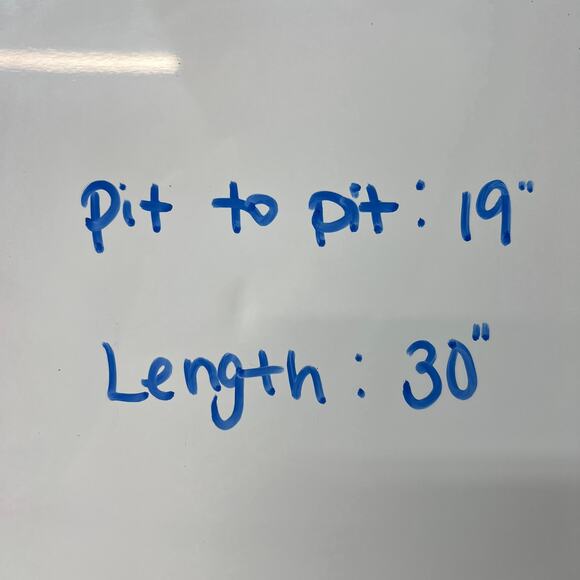 Pit to pit: 19"
Length: 30"